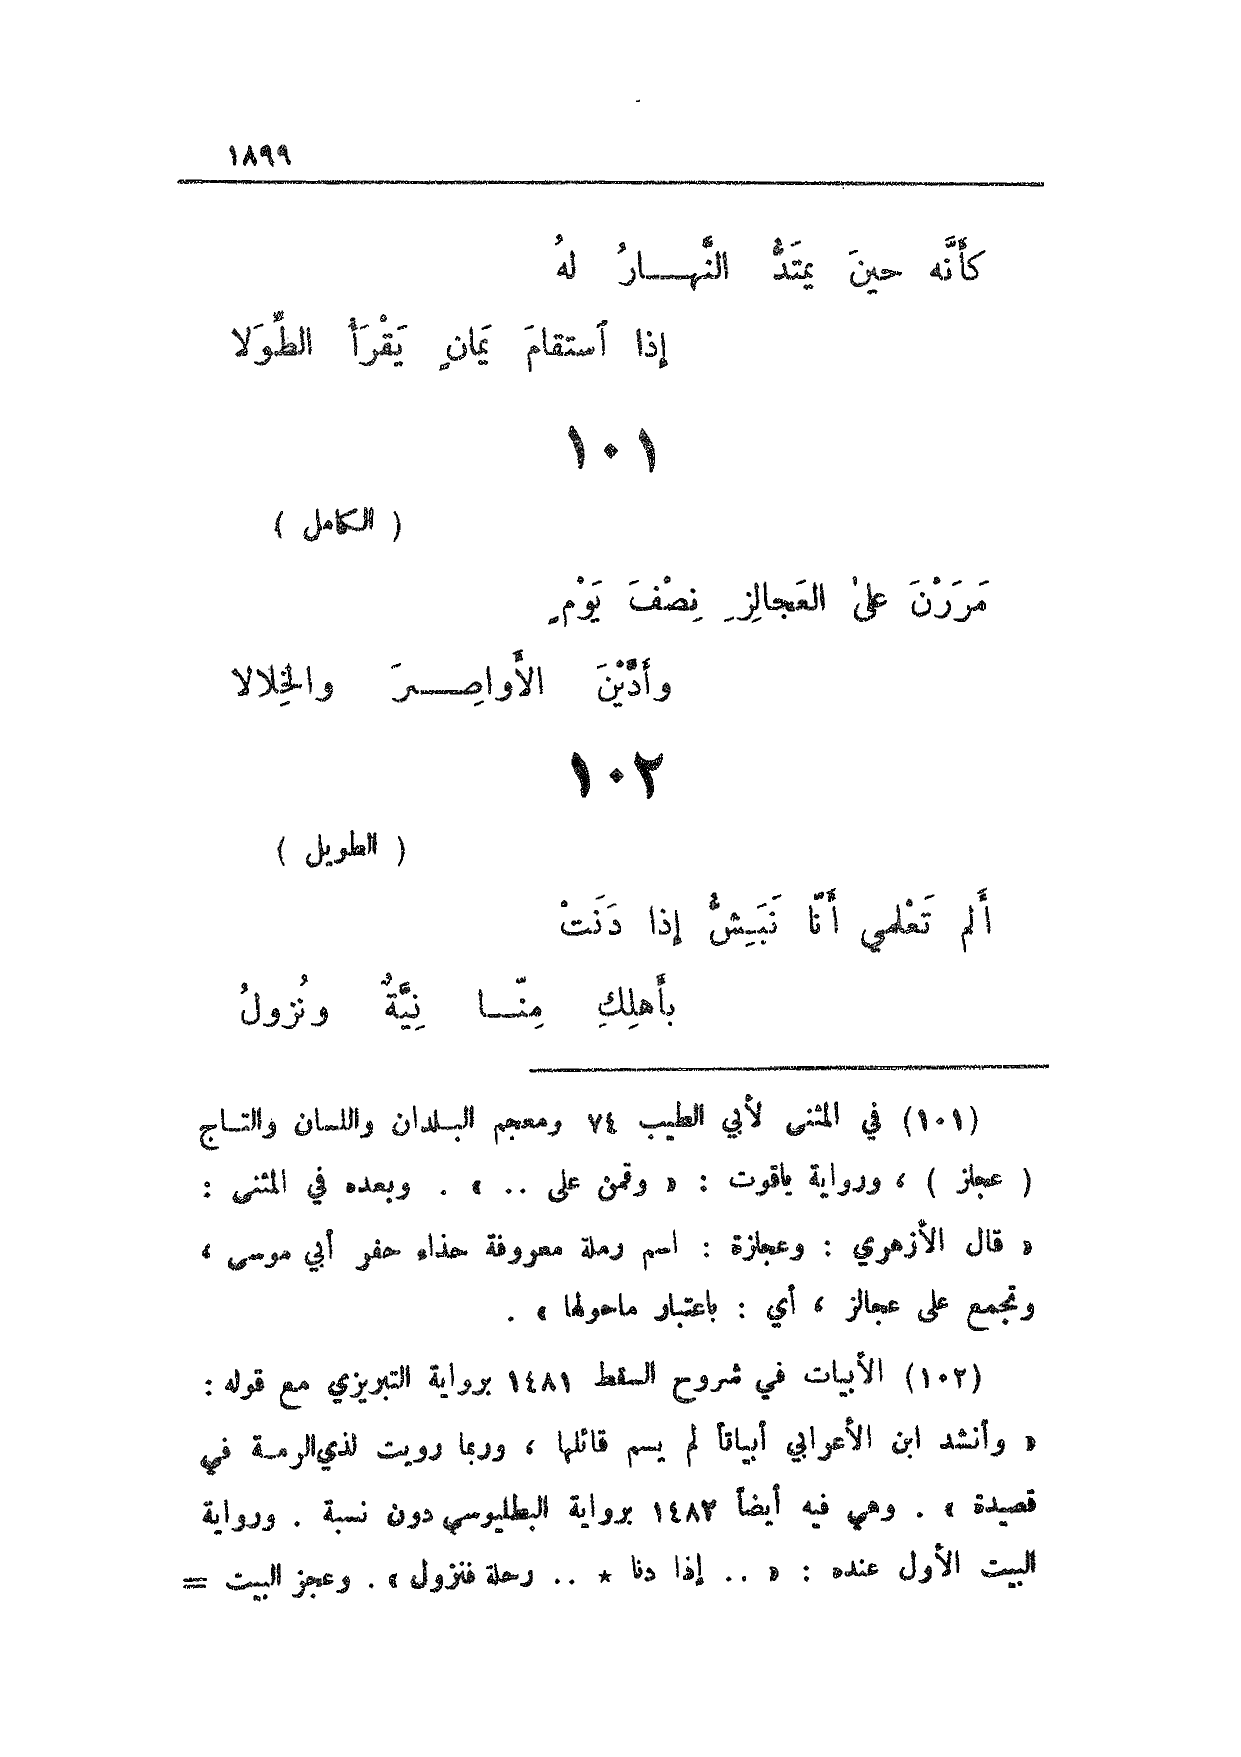 ١٨٩٩
كأَنَّه حينَ يمتَدُّ النَّهـــارُ لهُ
إذا ٱستقامَ يَمانٍ يَقْرَأُ الطِّوَلا
١٠١
( الكامل )
مَرَرْنَ علىٰ العَجالِزِ نِصْفَ يَوْمٍ
وأَدَّيْنَ الأَواصِـــرَ والخِلالا
١٠٢
( الطويل )
أَلم تَعْلمي أَنّا نَبَِشُّ إذا دَنَتْ
بأَهلِكِ مِنّـــا نِيَّةٌ ونُزولُ
(١٠١) في المثنى لأبي الطيب ٧٤ ومعجم البـلدان واللسان والتـاج
( عجلز ) ، ورواية ياقوت : « وقمن على .. » . وبعده في المثنى :
« قال الأزهري : وعجلزة : اسم رملة معروفة حذاء حفر أبي موسى ،
وتجمع على عجالز ، أي : باعتبار ماحولها » .
(١٠٢) الأبيات في شروح السقط ١٤٨١ برواية التبريزي مع قوله :
« وأنشد ابن الأعرابي أبياتاً لم يسم قائلها ، وربما رويت لذي الرمـة في
قصيدة » . وهي فيه أيضاً ١٤٨٢ برواية البطليوسي دون نسبة . ورواية
البيت الأول عنده : « .. إذا دنا * .. رحلة فنزول » . وعجز البيت =